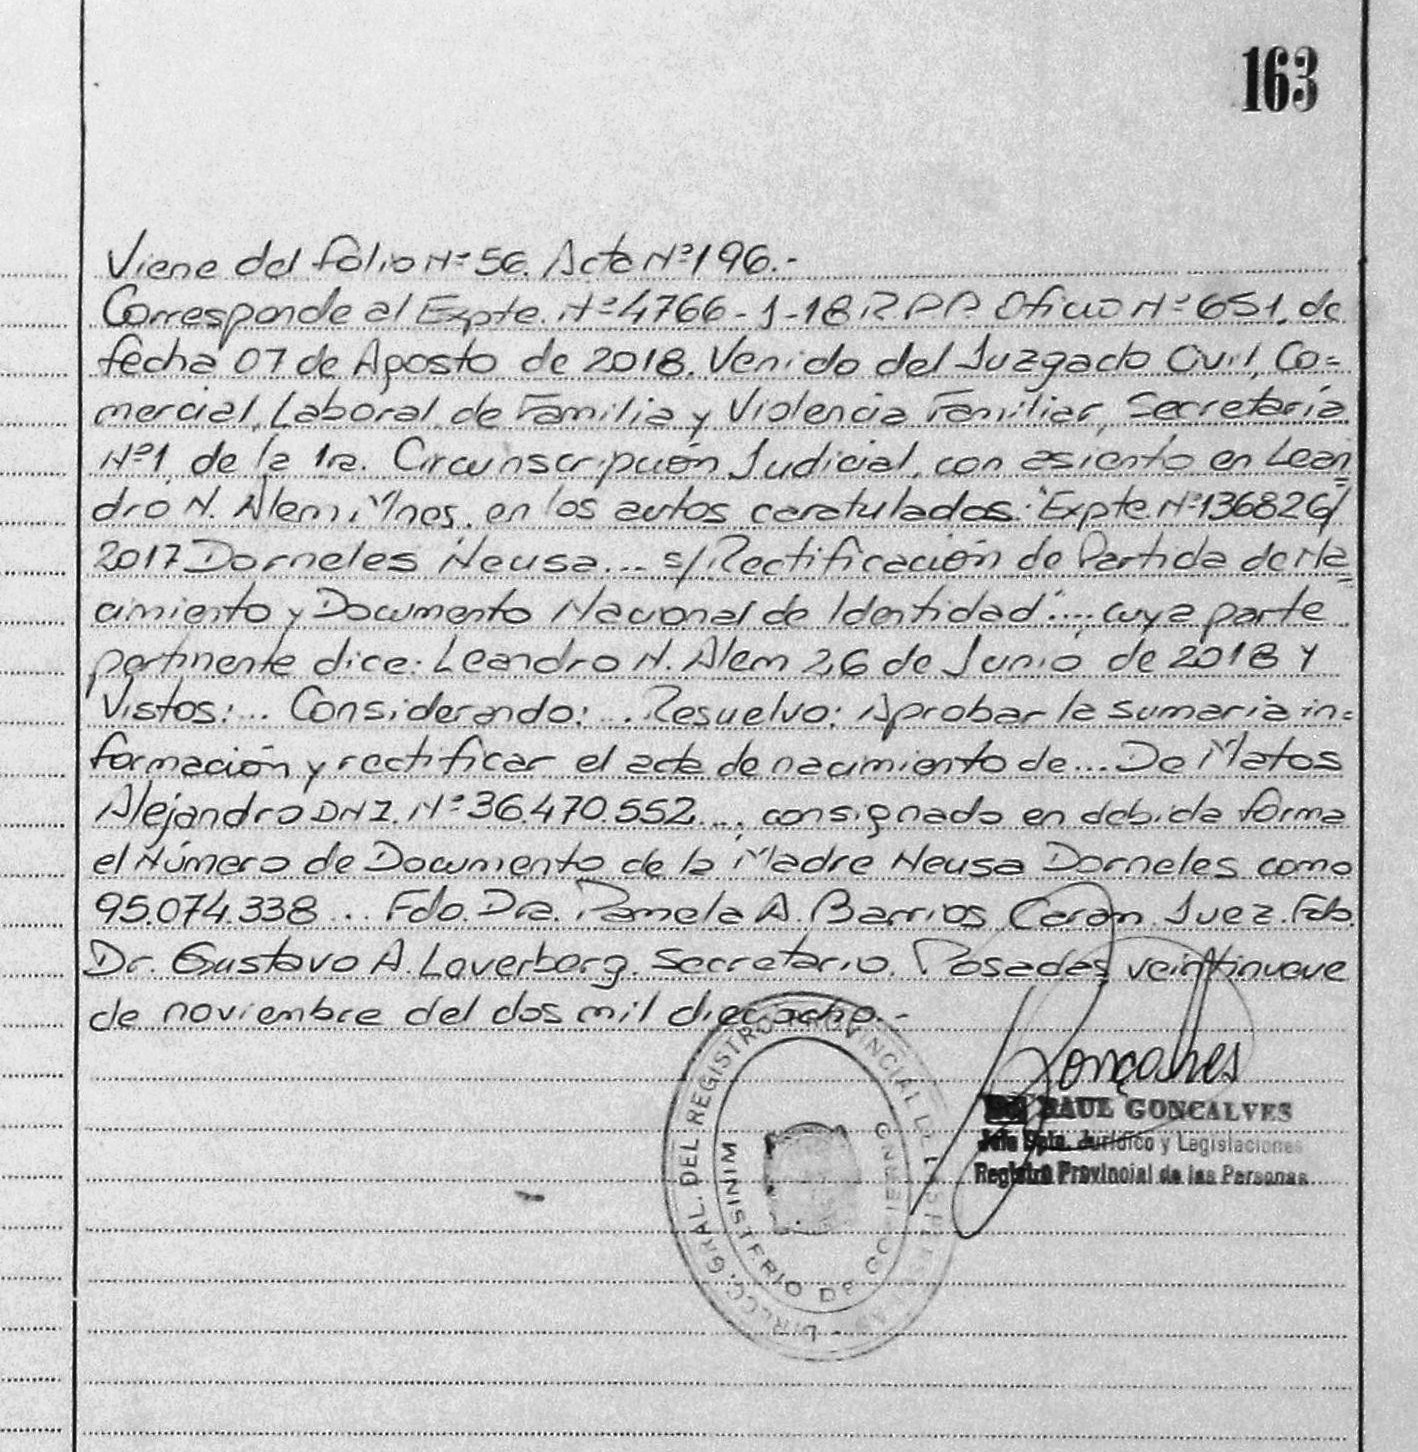 163
Viene del folio Nº 56. Acta Nº 196.-
Corresponde al Expte. Nº 4766-J-18 R.P.P. Oficio Nº 651, de
fecha 07 de Agosto de 2018. Venido del Juzgado Civil, Co=
mercial, Laboral, de Familia y Violencia Familiar, Secretaría
Nº 1 de la 1ra. Circunscripción Judicial, con asiento en Lean=
dro N. Alem Mnes, en los autos caratulados: "Expte. Nº 136826/
2017 Dorneles Neusa... s/ Rectificación de Partida de Na=
cimiento y Documento Nacional de Identidad"..., cuya parte
pertinente dice: Leandro N. Alem 26 de Junio de 2018 Y
Vistos:... Considerando:... Resuelvo: Aprobar la sumaria in=
formación y rectificar el acta de nacimiento de... De Matos
Alejandro DNI. Nº 36.470.552..., consignado en debida forma
el Número de Documento de la Madre Neusa Dorneles como
95.074.338... Fdo. Dra. Pamela A. Barrios Caram. Juez. Fdo.
Dr. Gustavo A. Loverberg. Secretario. Posadas, veintinueve
de noviembre del dos mil dieciocho.-
Gonçalves
RAUL GONCALVES
Jefe Dpto. Jurídico y Legislaciones
Registro Provincial de las Personas
DIRECC. GRAL. DEL REGISTRO PROVINCIAL DE LAS PERSONAS
MINISTERIO DE GOBIERNO